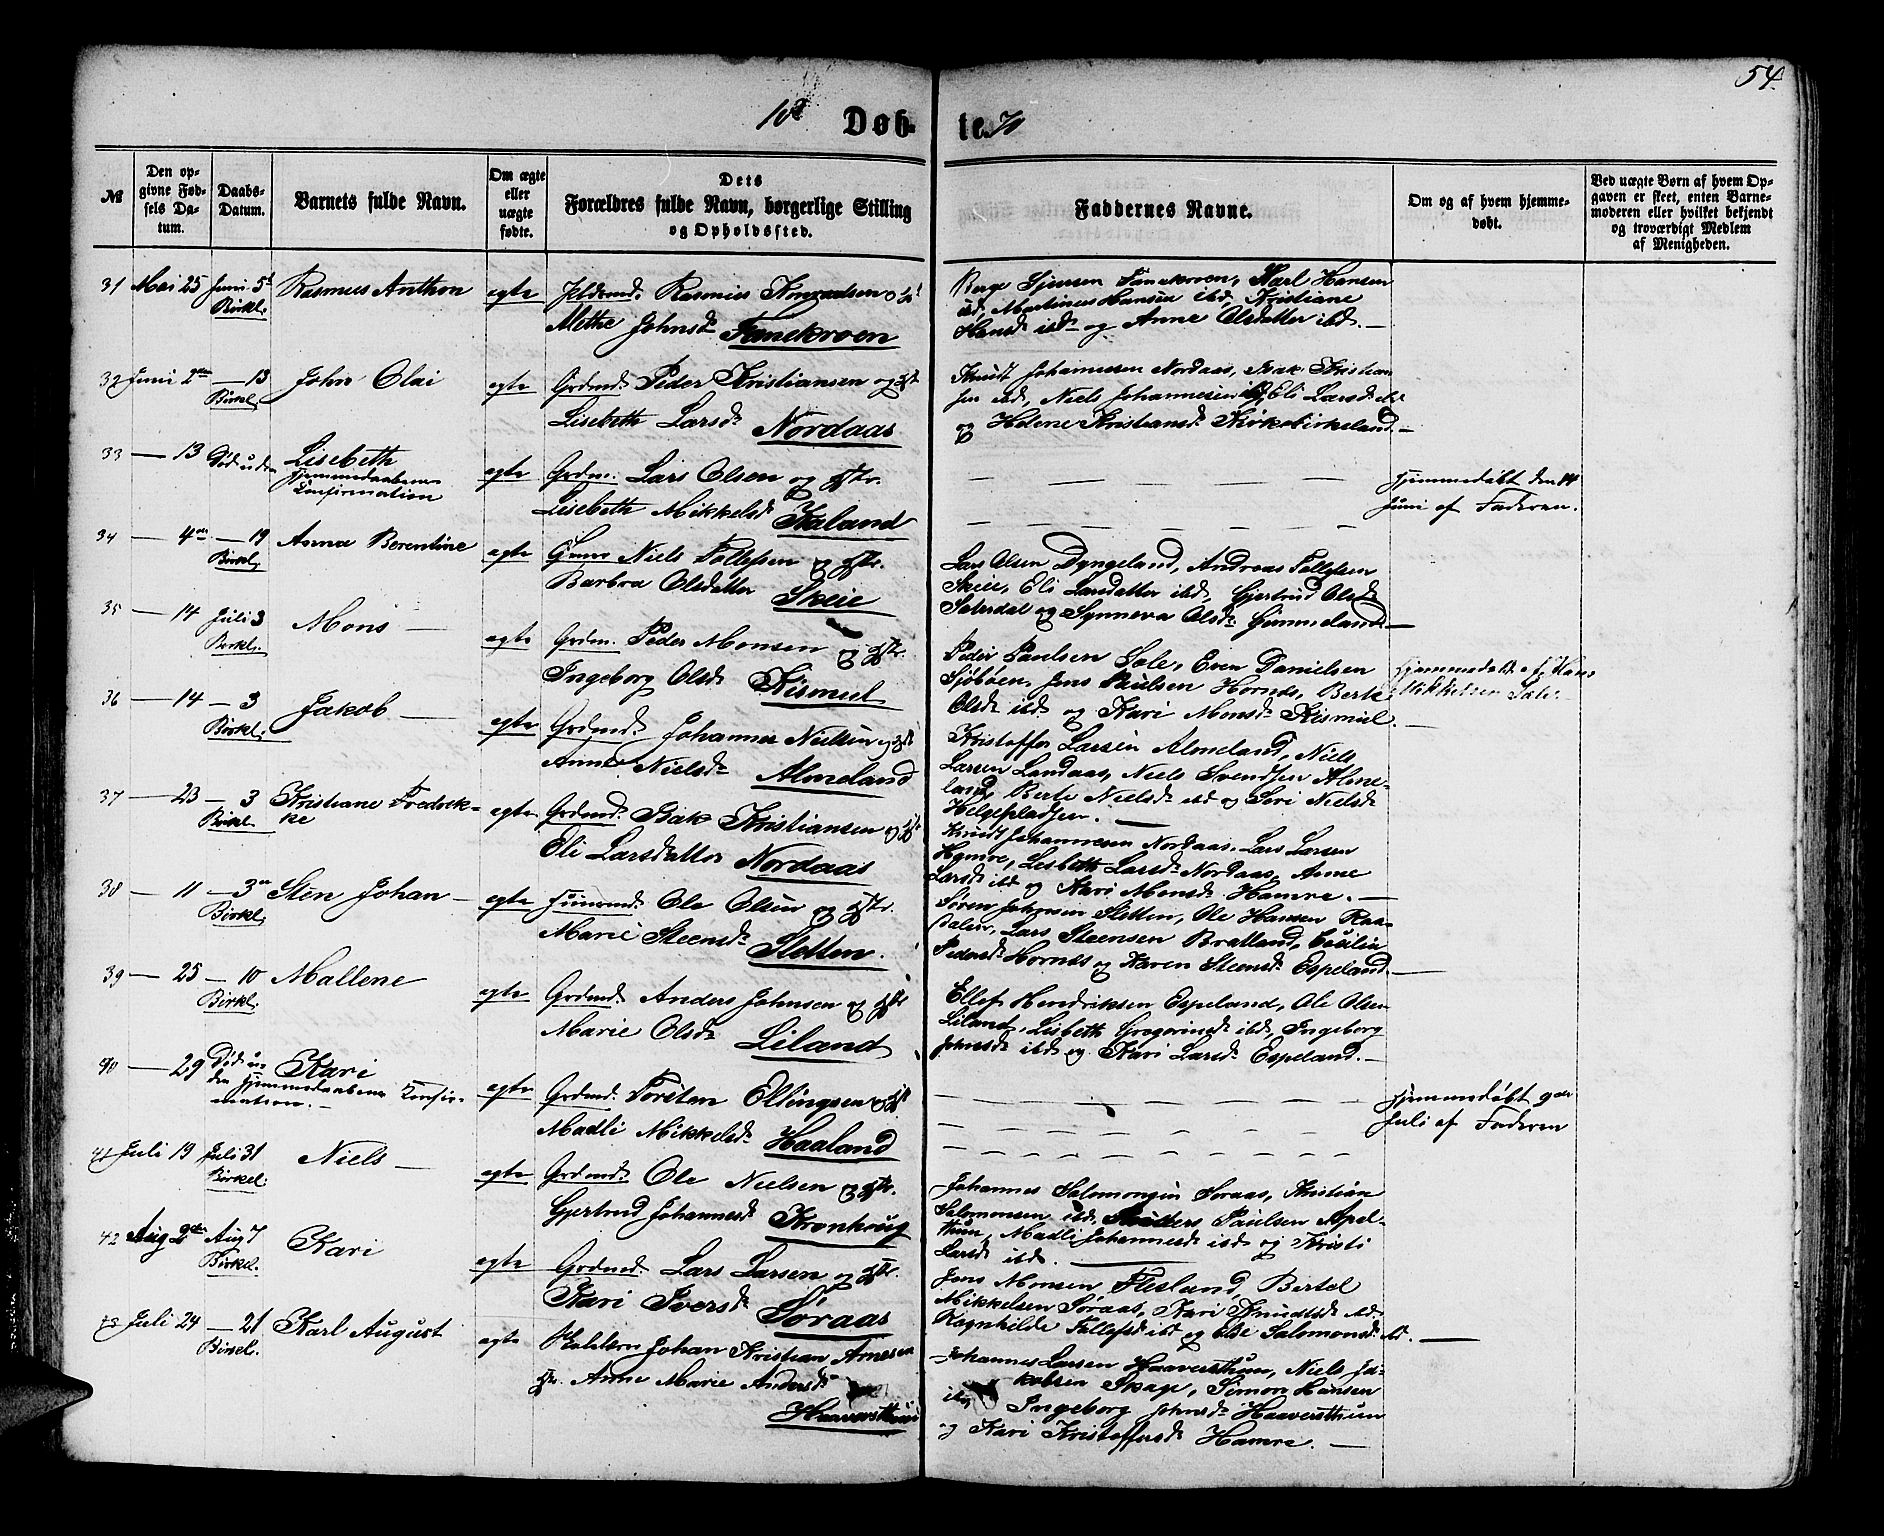 54.
18 Døb- te. 70
№ Den opgivne Fødsels Datum. Daabs-Datum. Barnets fulde Navn. Om ægte eller uægte fødte. Dets Forældres fulde Navn, borgerlige Stilling og Opholdssted. Faddernes Navne. Om og af hvem hjemmedøbt. Ved uægte Børn af hvem Opgaven er skeet, enten Barnemoderen eller hvilket bekjendt og troværdigt Medlem af Menigheden.
31 Mai 25 Juni 5t Rasmus Anthon egte Rasmus Knudsen
Birkl. Methe Johnsd. Fanekroen
Fanekroen, Karl Hansen
ibd, Martines Hansen ibd, Kristiane
Hansd ibd og Anne Olsdatter ibd. —
32 Juni 2den — 13 John Olai egte Grdmd. Peder Kristiansen og Hst
Birkl. Lisebeth Larsd. Nordaas
Knudt Johannessen Nordaas, Isak Kristian
sen ibd, Niels Johannesen ibd, Eli Larsd ibd
og Helene Kristiansd. Kirkebirkeland. —
33 — 13 Død uden Lisebeth egte Grdm. Lars Olsen og Hstr.
Hjemmedaabens
Confirmation Lisebeth Mikkelsd. Kaland
Hjemmedøbt den 14
Juni af Faderen.
34 — 4de — 19 Anna Berentine egte Niels Tollefsen og Hstr.
Birkl. Barbra Olsdatter Skeie
Lars Olsen Dyngeland, Andreas Tollefsen
Skeie, Eli Larsdatter ibd, Gjertrud Olsd
Sætersdal og Synneva Olsd. Gimmeland. —
35 — 14 Juli 3 Mons — egte Grdm. Peder Monsen og Hstr.
Birkl. Ingeborg Olsd. Kismul
Peder Paulsen Sæle, Even Danielsen
Sjøbøen, Jens Paulsen Hornæs, Berte
Olsd. ibd. og Kari Monsd. Kismul. —
Hjemmedøbt af Hans
Mikkelsen Sæle.
36 — 14 — 3 Jakob — egte Grdmd. Johannes Nielsen og Hst
Birkl. Anne Nielsd. Almeland
Kristoffer Larsen Almeland, Niels
Larsen Landaas, Niels Svendsen Alme-
land, Berte Nielsd. ibd og Seri Nielsd.
Helgepladsen. —
37 — 23 — 3 Kristiane Fredrik- egte Grdmd. Isak Kristiansen og Hst
Birkl. ke Eli Larsdatter Nordaas
Knudt Johannesen Nordaas, Lars Larsen
Hamre, Lisbeth Larsd. Nordaas, Anne
Larsd ibd og Kari Monsd. Hamre. —
38 — 11 — 3 Sten Johan — egte Ole Olsen og Hstr.
Birkl. Marie Steensd. Sletten.
Søren Johnsen Sletten, Ole Hansen Raa-
dalen, Lars Steensen Bratland, Cecilia
Pedersd. Hornæs og Karen Steensd. Espeland. —
39 — 25 — 10 Mallene egte Grdmd. Anders Johnsen og Hst
Birkl. Marie Olsd. Liland
Ellef Hendriksen Espeland, Ole Olsen
Liland, Lisbeth Gregorinsd. ibd, Ingeborg
Johnsd ibd og Kari Larsd. Espeland. —
40 — 29 Død u- Kari egte Grdmd. Torsten Ellingsen og Hst
den Hjemmedaabens Confir-
mation. — Madli Mikkelsd. Haaland
Hjemmedøbt 9de
Juli af Faderen
41 Juli 19 Juli 31 Niels — egte Grdmd. Ole Nielsen og Hstr.
Birkel. Gjertrud Johannesd. Kronhoug
Johannes Salomonsen Søraas, Kristian
Salomonsen ibd, Paulsen Apel-
thun, Madli Johannesd. ibd og Kristi
Larsd. ibd. —
42 Aug 2den Aug 7 Kari egte Grdmd. Lars Larsen og Hstr.
Birkel. Kari Iversd. Søraas
Jens Monsen Flesland, Bertel
Mikkelsen Søraas, Kari Knudtsd. ibd.
Ragnhilde Tollefsd ibd og Else Salomonsd. ibd. —
43 Juli 24 — 21 Karl August egte Johan Kristian Arnesen
Birkel. Hstr. Anne Marie Andersd.
Haaversthun
Johannes Larsen Haaversthun, Niels Ja-
kobsen Skage, Simon Hansen
ibd, Ingeborg Johnsd. Haaversthun
og Kari Kristoffersd. Hamre. —